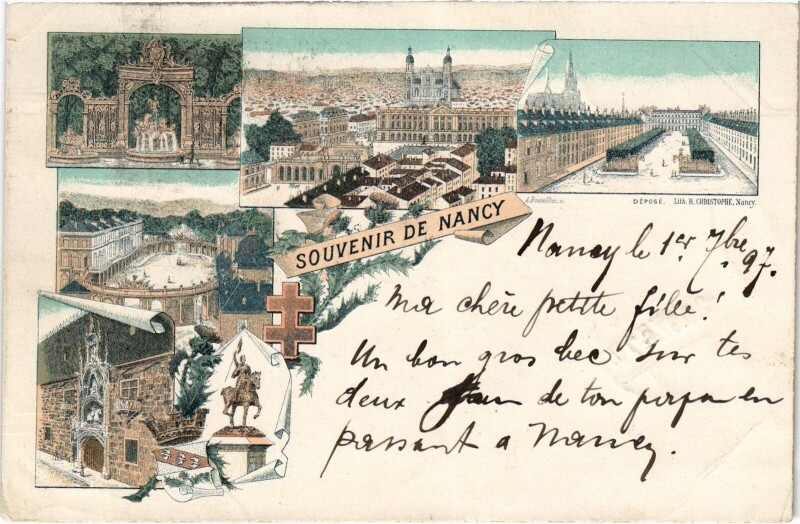 A. Bouvillon sc
DÉPOSÉ. Lith. H. CHRISTOPHE, Nancy.
SOUVENIR DE NANCY
Nancy le 1er 7bre 97.
Ma chère petite fille!
Un bon gros bec sur tes
deux de ton en
passant a Nancy.